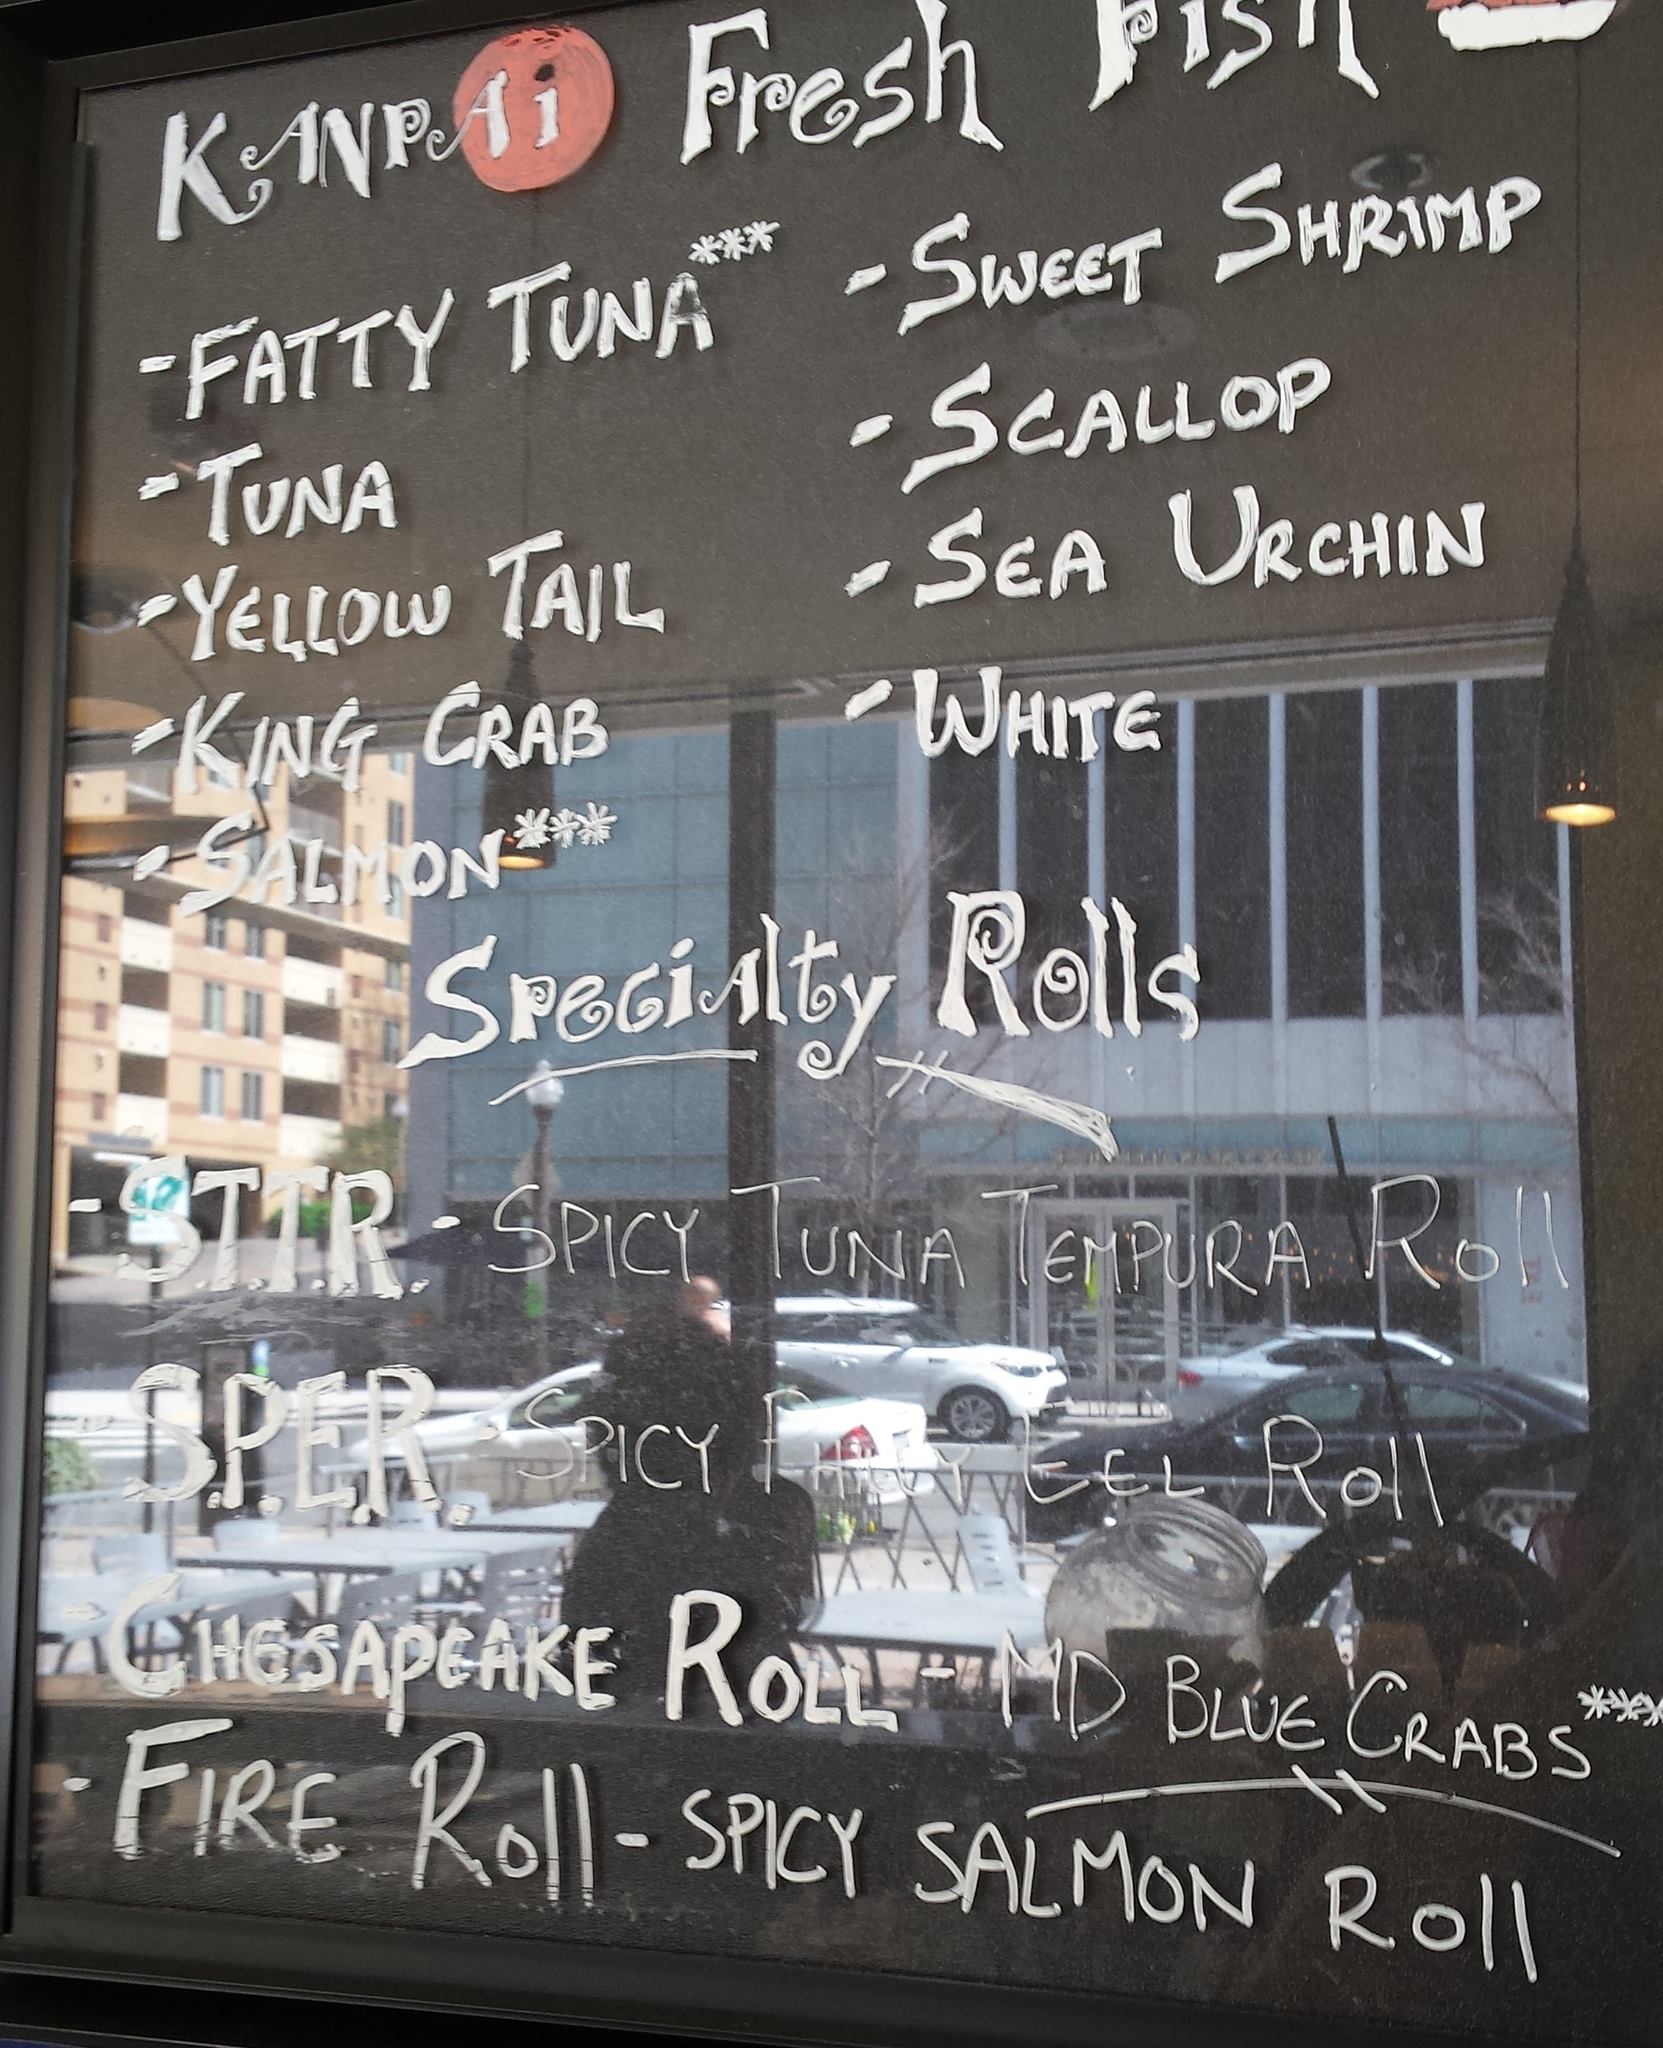 KANPAi Fresh Fish
- FATTY TUNA*** - SWEET SHRIMP
- TUNA - SCALLOP
- YELLOW TAIL - SEA URCHIN
- KING CRAB - WHITE
- SALMON***
Specialty Rolls
- S.T.T.R. - SPICY TUNA TEMPURA Roll
- S.P.E.R. - SPICY EEL Roll
- CHESAPEAKE ROLL - MD BLUE CRABS***
- FIRE Roll - SPICY SALMON Roll